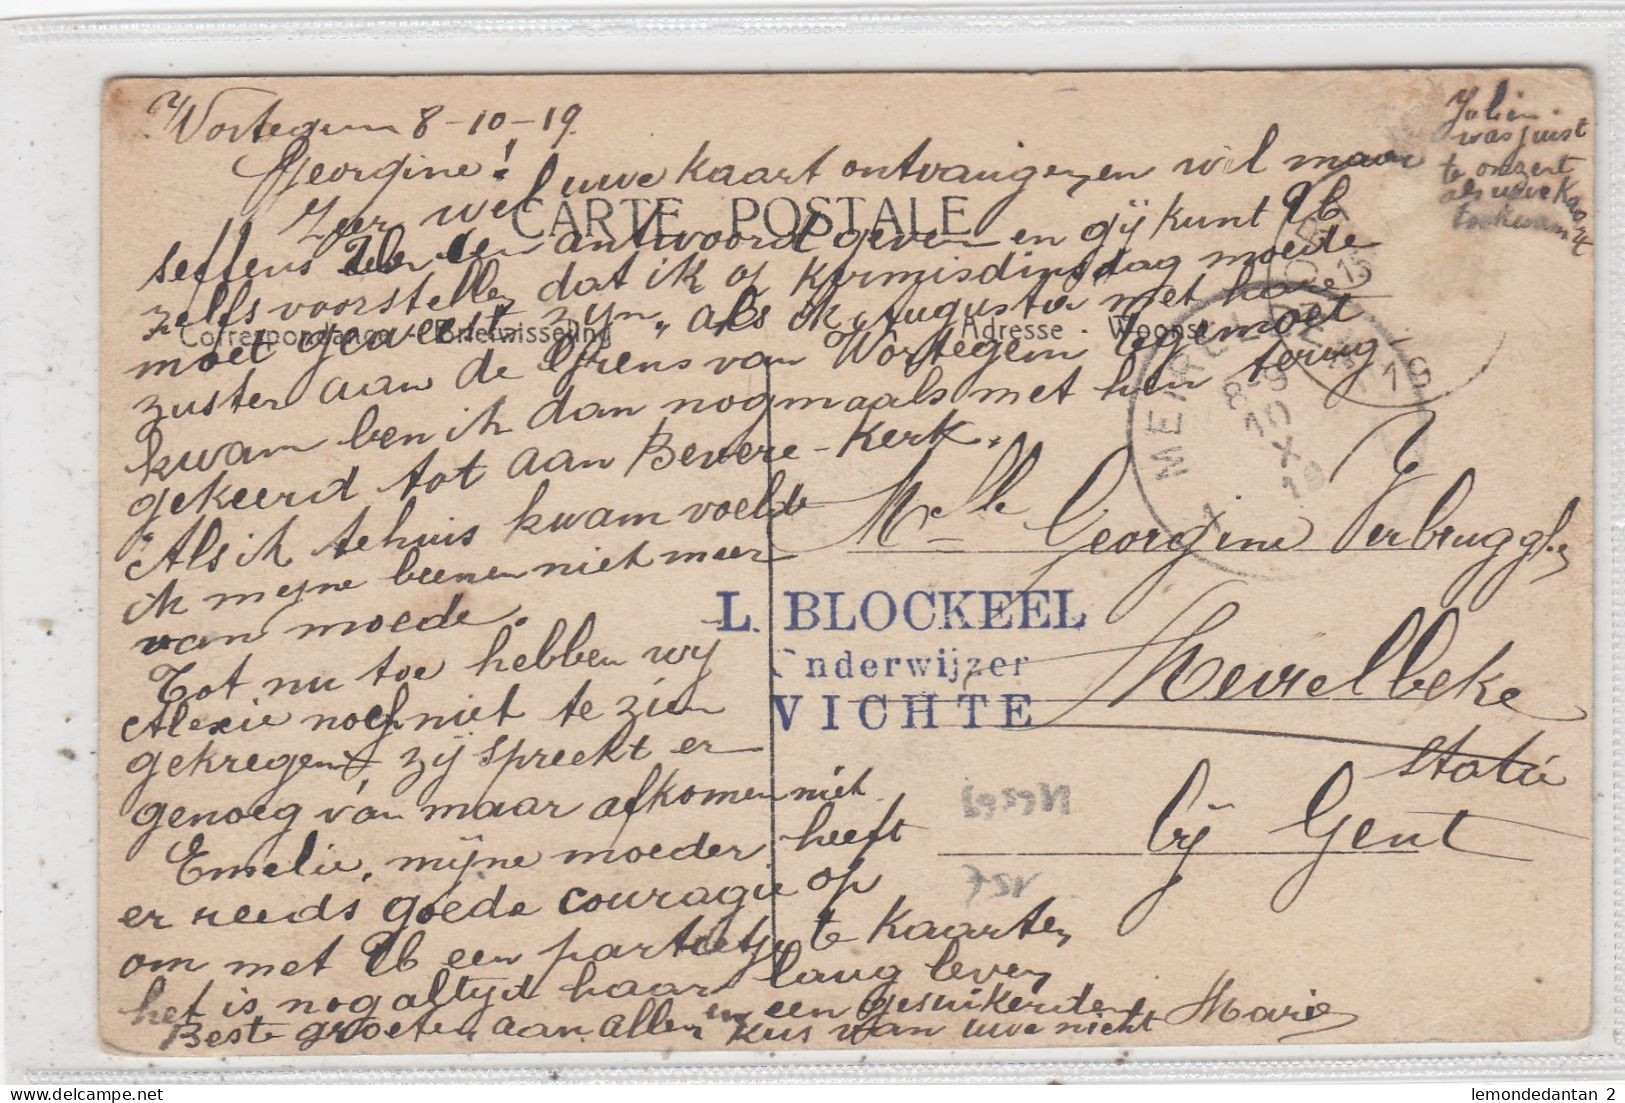 Wortegem 8-10-19
Georgine!
Zeer wel uwe kaart ontvangen, en wil maar
seffens antwoord geven en gij kunt Ub
zelfs voorstellen dat ik op kermisdinsdag moede
moet geweest zijn, als ik Augusta met hare
zuster aan de Grens van Wortegem tegemoet
kwam ben ik dan nogmaals met hen terug
gekeerd tot aan Bevere-Kerk.
Als ik tehuis kwam voelde
ik mijne beenen niet meer
van moede.
Tot nu toe hebben wij
Alexie noch niet te zien
gekregen, zij spreekt er
genoeg van maar afkomen niet.
Emelie, mijne moeder heeft
er reeds goede couragie op
om met Ub een partietje te kaarten
het is nog altijd haar lang leven
Beste groeten aan allen en een gesuikerden
kus van uwe nicht Marie
Julien
was juist
te
als uwe kaart
toekwam
CARTE POSTALE
Correspondance - Briefwisseling
Adresse - Woonst
MERELBEKE
8-9
10
X
19
15
19
Melle Georgine Verbrugghe
L. BLOCKEEL
Onderwijzer
VICHTE
Meirelbeke
statie
bij Gent
lemondedantan 2